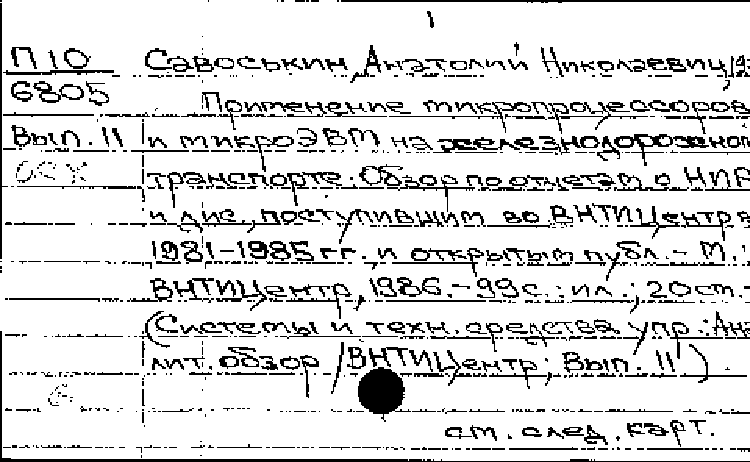 1
П10 Савоськин, Анатолий Николаевич,
6805 Применение микропроцессоров
Вып. 11 и микроЭВМ на железнодорожном
транспорте. Обзор по отчетам о НИР
и дис., поступившим во ВНТИЦентр в
1981-1985 гг. и открытым публ. - М.:
ВНТИЦентр, 1986. - 99 с.: ил.; 20 см. -
(Системы и техн. средства упр.: Ана
лит. обзор / ВНТИЦентр; Вып. 11).
см. след. карт.